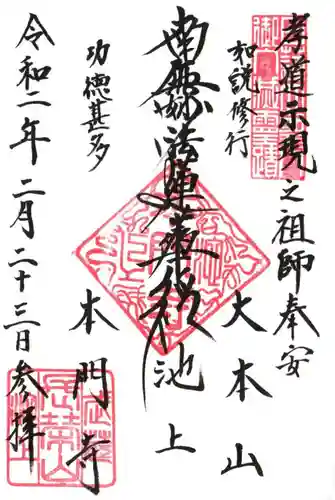 孝道示現之祖師奉安
如説修行
大本山
南無妙法蓮華経
池上
本門寺
功徳甚多
令和二年二月二十三日参拝